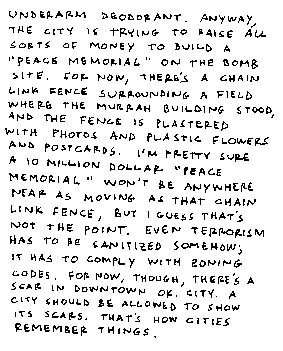 UNDERARM DEODORANT. ANYWAY,
THE CITY IS TRYING TO RAISE ALL
SORTS OF MONEY TO BUILD A
"PEACE MEMORIAL" ON THE BOMB
SITE. FOR NOW, THERE'S A CHAIN
LINK FENCE SURROUNDING A FIELD
WHERE THE MURRAH BUILDING STOOD,
AND THE FENCE IS PLASTERED
WITH PHOTOS AND PLASTIC FLOWERS
AND POSTCARDS. I'M PRETTY SURE
A 10 MILLION DOLLAR "PEACE
MEMORIAL" WON'T BE ANYWHERE
NEAR AS MOVING AS THAT CHAIN
LINK FENCE, BUT I GUESS THAT'S
NOT THE POINT. EVEN TERRORISM
HAS TO BE SANITIZED SOMEHOW;
IT HAS TO COMPLY WITH ZONING
CODES. FOR NOW, THOUGH, THERE'S A
SCAR IN DOWNTOWN OK. CITY. A
CITY SHOULD BE ALLOWED TO SHOW
ITS SCARS. THAT'S HOW CITIES
REMEMBER THINGS.